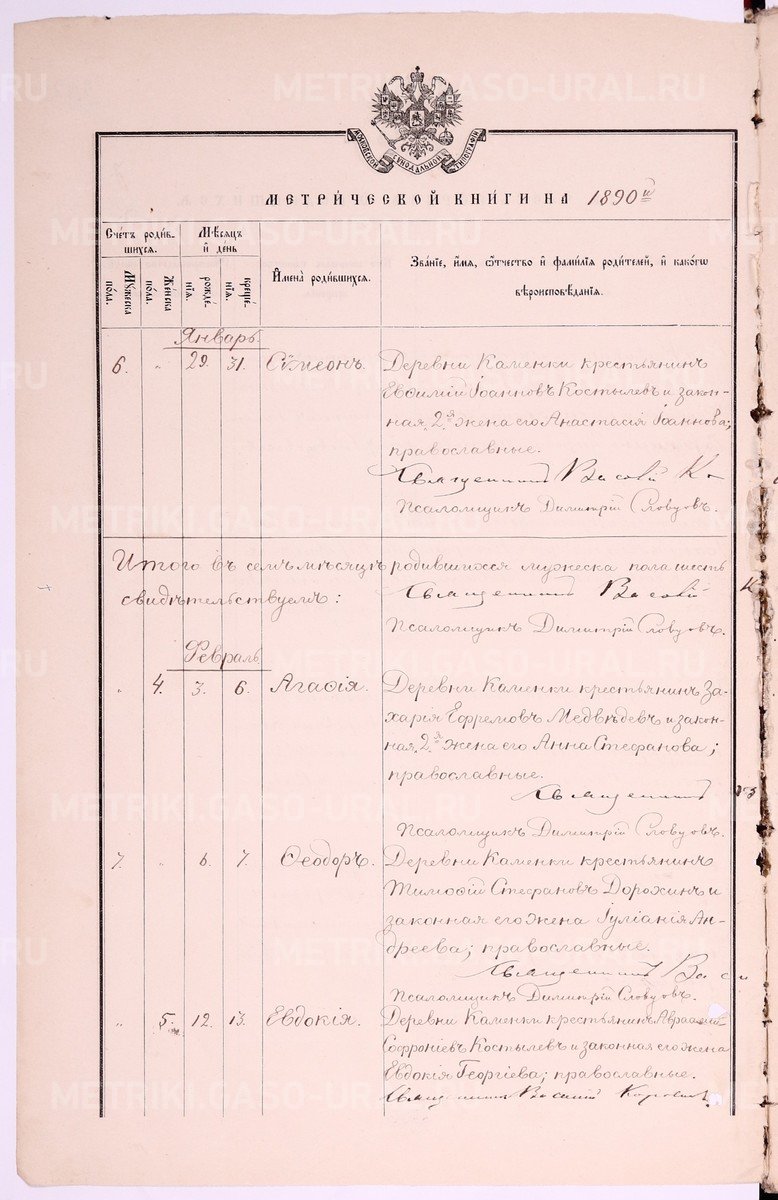 МОСКОВСКОЙ СѴНОДАЛЬНОЙ ТИПОГРАФІИ
МЕТРИ́ЧЕСКОЙ КНИ́ГИ НА 1890 й
Сче́тъ роди́вшихся.
Мѣ́сяцъ и де́нь
Му́жеска по́ла.
Же́нска по́ла.
рожде́нїѧ.
креще́нїѧ.
И҆мена̀ роди́вшихся.
Зва́нїе, и҆́мѧ, ѻ҆́тчество и҆ фами́лїѧ роди́телей, и҆ како́гѡ
вѣроисповѣ́данїѧ.
Январь.
6. " 29. 31. Сѷмеонъ. Деревни Каменки крестьянинъ
Евѳимій Іоанновъ Костылевъ и закон-
ная, 2.я жена его Анастасія Іоаннова;
православные.
Священникъ Васілій Ко
Псаломщикъ Димитрій Словцовъ.
Итого въ семъ мѣсяцѣ родившихся мужеска пола шесть
свидѣтельствуемъ: Священникъ Васілій К
Псаломщикъ Димитрій Словцовъ.
Февраль
" 4. 3. 6. Агаѳія. Деревни Каменки крестьянинъ За-
харія Ефремовъ Медвѣдевъ и закон-
ная, 2.я жена его Анна Стефанова;
православные.
Священникъ
Псаломщикъ Димитрій Словцовъ.
7. " 6. 7. Ѳеодоръ. Деревни Каменки крестьянинъ
Тимоѳій Стефановъ Дорохинъ и
законная его жена Іуліанія Ан-
дреева; православные.
Священникъ Васи
Псаломщикъ Димитрій Словцовъ.
" 5. 12. 13. Евдокія. Деревни Каменки крестьянинъ Авраамій
Софроніевъ Костылевъ и законная его жена
Евдокія Георгіева; православные.
Священникъ Василій
METRIKI.GASO-URAL.RU